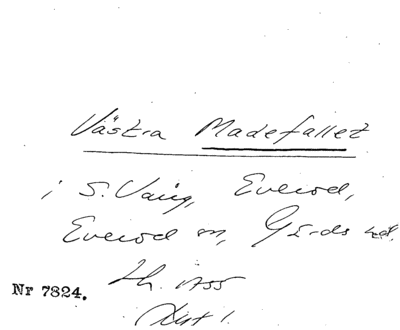 Västra Madefallet
i S. Vång, Everöd,
Everöd sn, Gärds hd.
Nr 7824.